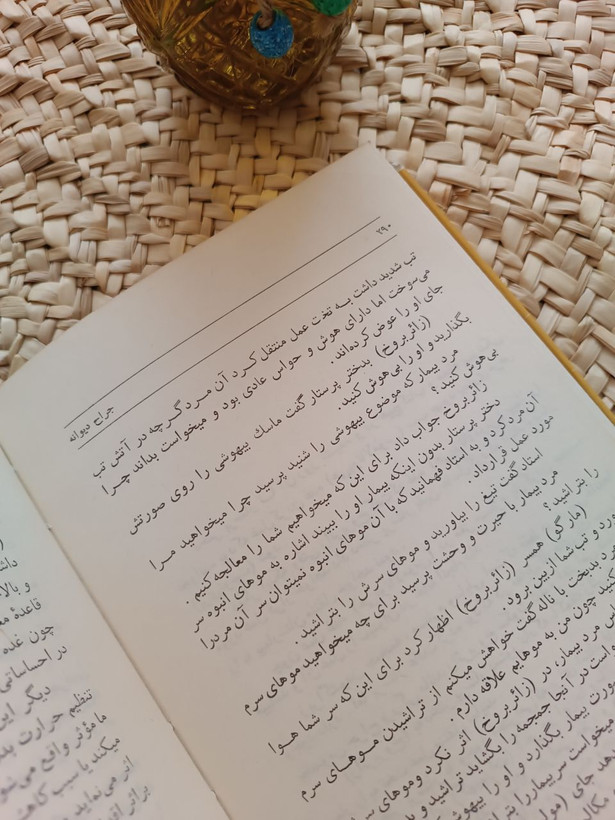 ۲۹۰
جراح دیوانه
تب شدید داشت به تخت عمل منتقل کرد آن مرد گرچه در آتش تب
می‌سوخت اما دارای هوش و حواس عادی بود و میخواست بداند چرا
جای او را عوض کرده‌اند.
(زائربروخ) بدختر پرستار گفت ماسك بیهوشی را روی صورتش
بگذارید و او را بی‌هوش کنید.
مرد بیمار که موضوع بیهوشی را شنید پرسید چرا میخواهید مرا
بی‌هوش کنید؟
زائربروخ جواب داد برای این که میخواهیم شما را معالجه کنیم.
دختر پرستار بدون اینکه بیمار او را ببیند اشاره به موهای انبوه سر
آن مرد کرد و به استاد فهمانید که با آن موهای انبوه نمیتوان سر آن مرد را
مورد عمل قرارداد.
استاد گفت تیغ را بیاورید و موهای سرش را بتراشید.
مرد بیمار با حیرت و وحشت پرسید برای چه میخواهید موهای سرم
را بتراشید؟
(مارگو) همسر (زائربروخ) اظهار کرد برای این که سر شما هوا
بخورد و تب شما از بین برود.
بدبخت با ناله گفت خواهش میکنم از تراشیدن موهای سرم
چون من به موهایم علاقه دارم.
مرد بیمار، در (زائربروخ) اثر نکرد وموهای سر
در آنجا جمجمه را بگشاید تراشید و
صورت بیمار بگذارد و او را بیهوش
میخواست سر بیمار را
جای
(
و بالا
قاعدهٔ
چون غده
در احساساتی
دیگر این
تنظیم حرارت
ما مؤثر واقع می‌شو
میکند یا سبب
اثر می‌نماید
براثر